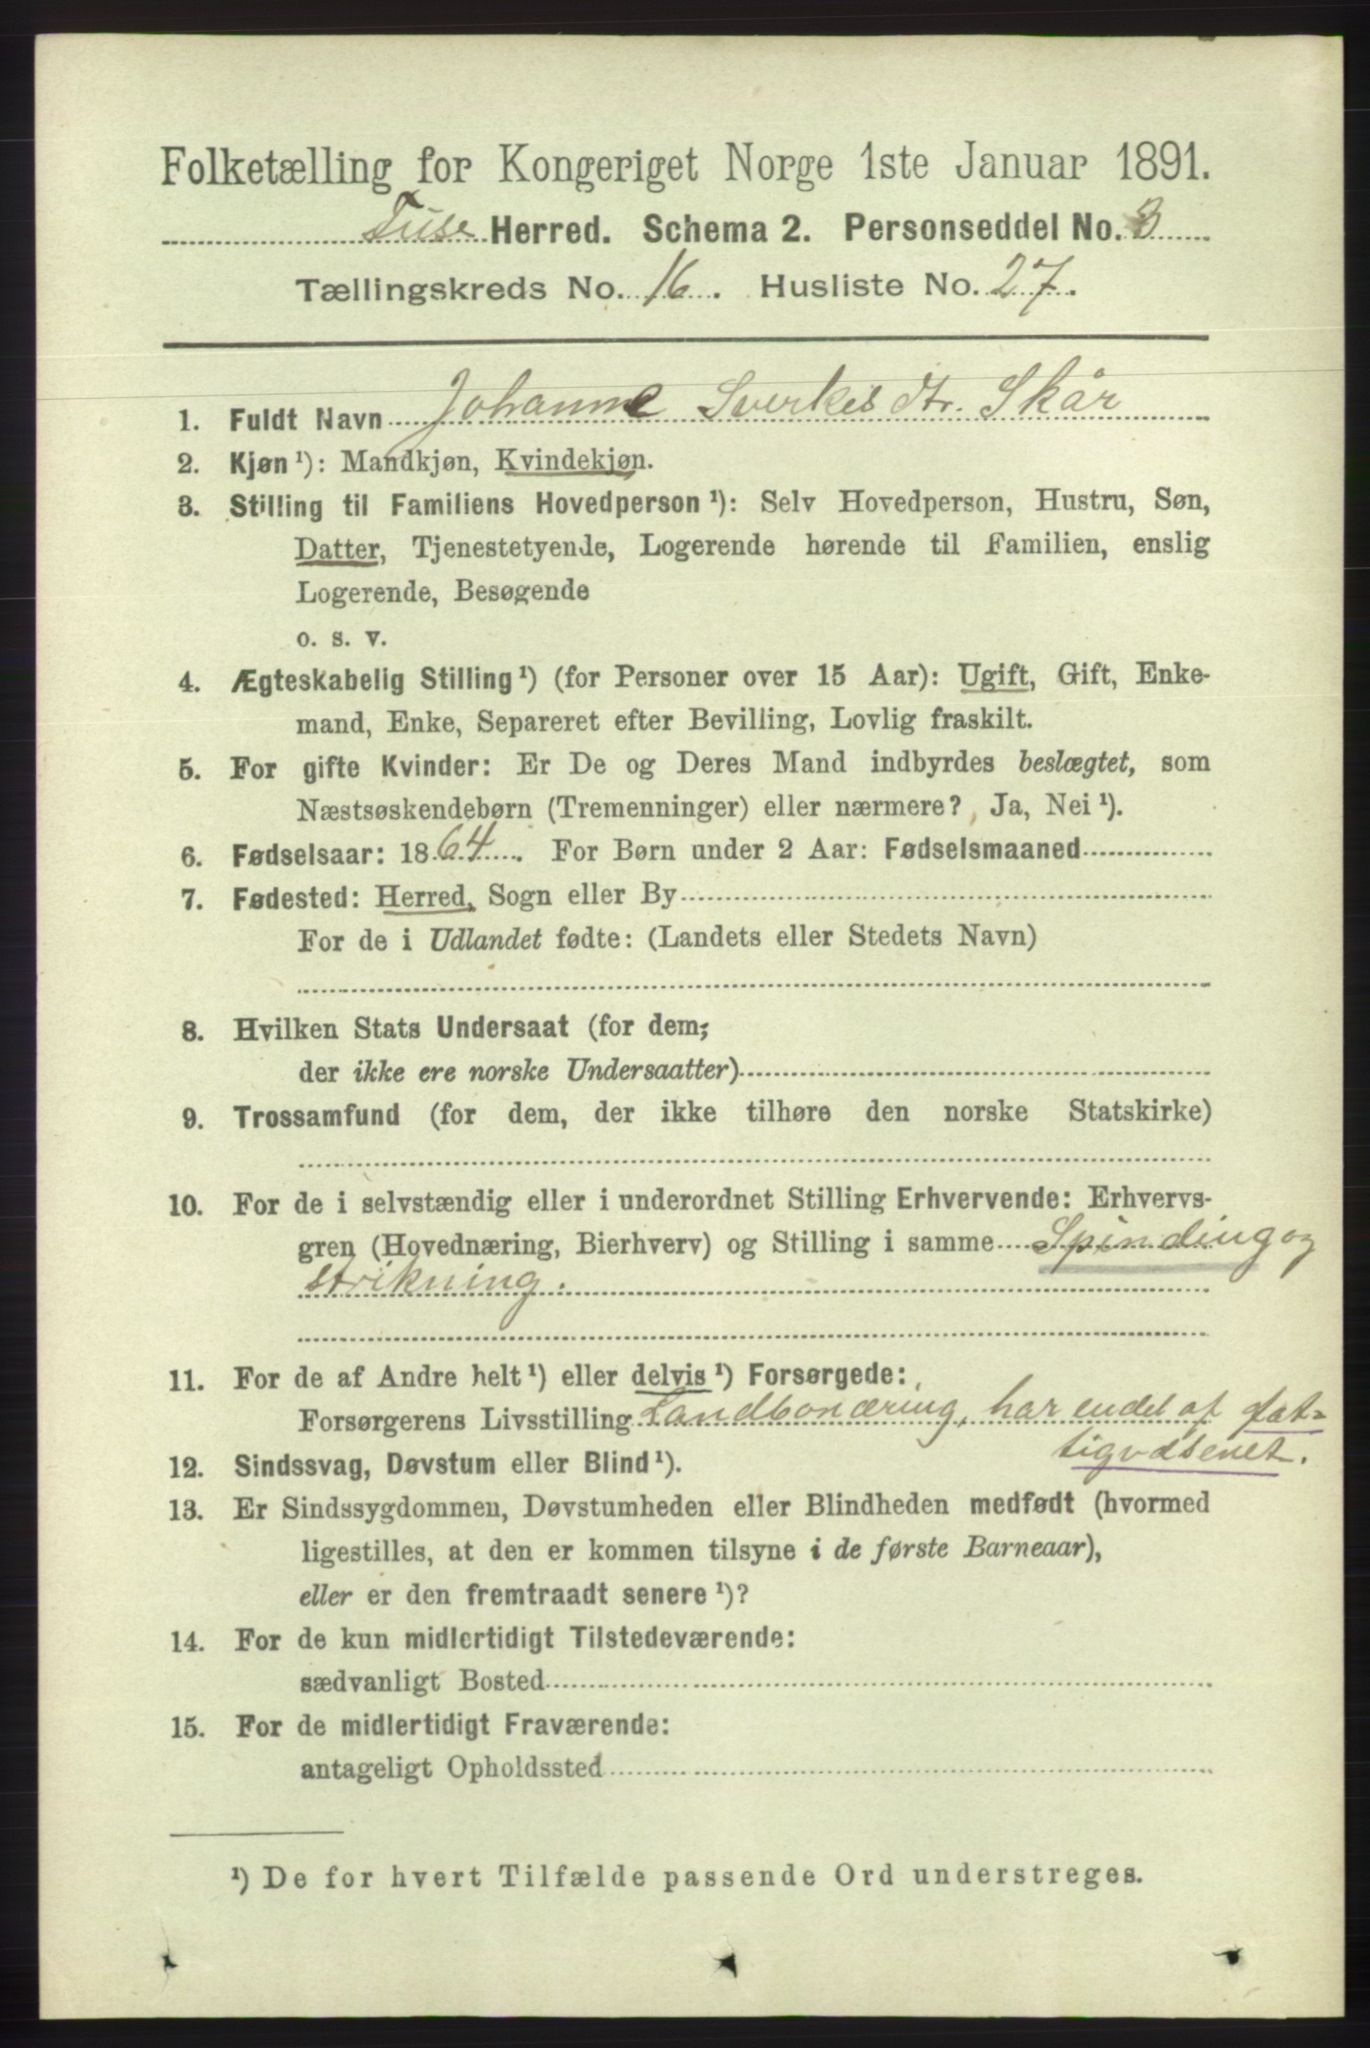 Folketælling for Kongeriget Norge 1ste Januar 1891.
Fuse Herred. Schema 2. Personseddel No. 3
Tællingskreds No. 16. Husliste No. 27.
1. Fuldt Navn Johanne Sverkesdtr. Skår
2. Kjøn¹): Mandkjøn, Kvindekjøn.
3. Stilling til Familiens Hovedperson¹): Selv Hovedperson, Hustru, Søn,
Datter, Tjenestetyende, Logerende hørende til Familien, enslig
Logerende, Besøgende
o. s. v.
4. Ægteskabelig Stilling¹) (for Personer over 15 Aar): Ugift, Gift, Enke-
mand, Enke, Separeret efter Bevilling, Lovlig fraskilt.
5. For gifte Kvinder: Er De og Deres Mand indbyrdes beslægtet, som
Næstsøskendebørn (Tremenninger) eller nærmere? Ja, Nei¹).
6. Fødselsaar: 1864. For Børn under 2 Aar: Fødselsmaaned
7. Fødested: Herred, Sogn eller By
For de i Udlandet fødte: (Landets eller Stedets Navn)
8. Hvilken Stats Undersaat (for dem,
der ikke ere norske Undersaatter)
9. Trossamfund (for dem, der ikke tilhøre den norske Statskirke)
10. For de i selvstændig eller i underordnet Stilling Erhvervende: Erhvervs-
gren (Hovednæring, Bierhverv) og Stilling i samme Spinding og
strikning.
11. For de af Andre helt¹) eller delvis¹) Forsørgede:
Forsørgerens Livsstilling Landbonæring, har endel af fat-
tigvæsenet.
12. Sindssvag, Døvstum eller Blind¹).
13. Er Sindssygdommen, Døvstumheden eller Blindheden medfødt (hvormed
ligestilles, at den er kommen tilsyne i de første Barneaar),
eller er den fremtraadt senere¹)?
14. For de kun midlertidigt Tilstedeværende:
sædvanligt Bosted
15. For de midlertidigt Fraværende:
antageligt Opholdssted
¹) De for hvert Tilfælde passende Ord understreges.